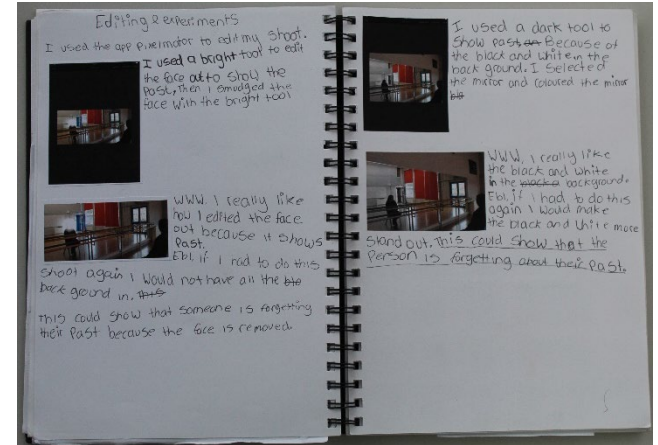 Editing & experiments
I used the app Pixelmator to edit my shoot.
I used a bright tool to edit
the face out to show the
Past, Then I smudged the
face with the bright tool
WWW. I really like
how I edited the face
out because it shows
Past.
Ebl. if I had to do this
shoot again I would not have all the
back ground in. This
This could show that someone is forgetting
their Past because the face is removed
I used a dark tool to
Show past, Because of
the black and white in the
back ground. I selected
the mirror and coloured the mirror
WWW. I really like
the black and white
in the background.
Ebl. if I had to do this
again I would make
the black and white more
stand out. This could show that the
Person is forgetting about their Past.